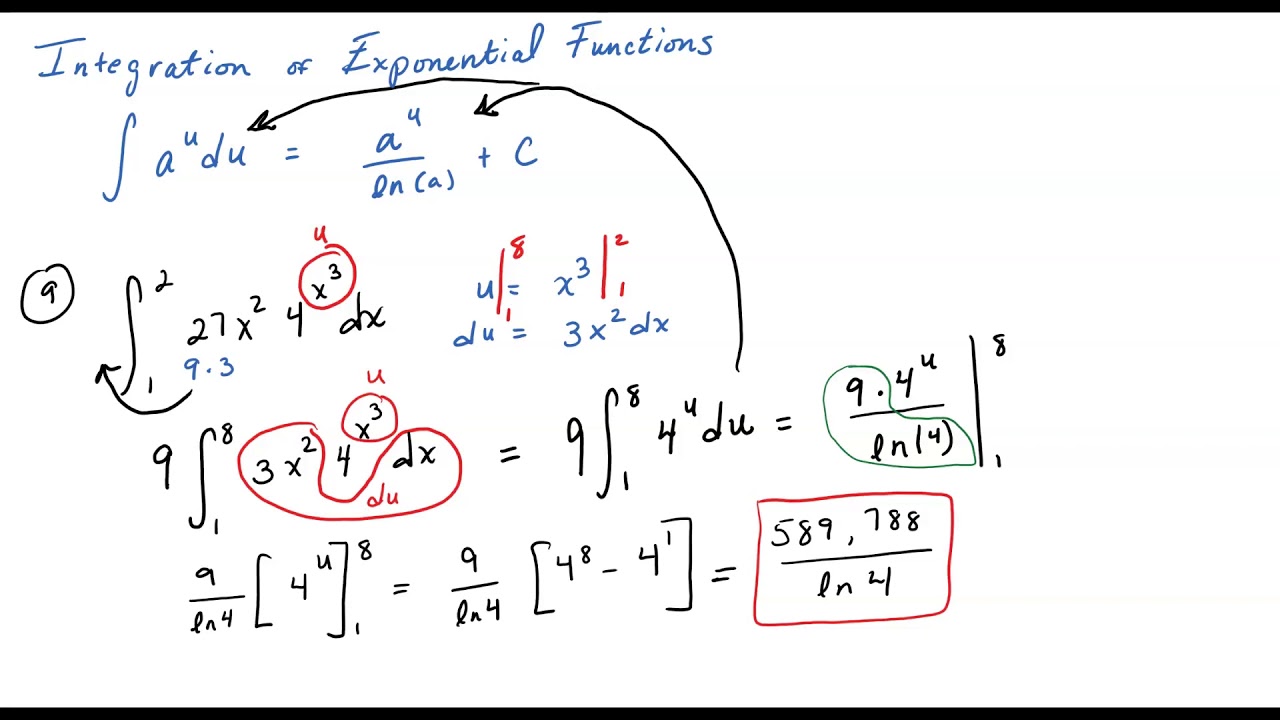 Integration of Exponential Functions
∫ a^u du = a^u / ln(a) + C
9 ∫_1^2 27x^2 4^{x^3} dx u
9·3
u |_1^8 = x^3 |_1^2
du = 3x^2 dx
9 ∫_1^8 3x^2 4^{x^3} dx u du = 9 ∫_1^8 4^u du = 9·4^u / ln(4) |_1^8
9/ln4 [4^u]_1^8 = 9/ln4 [4^8 - 4^1] = 589,788 / ln 4